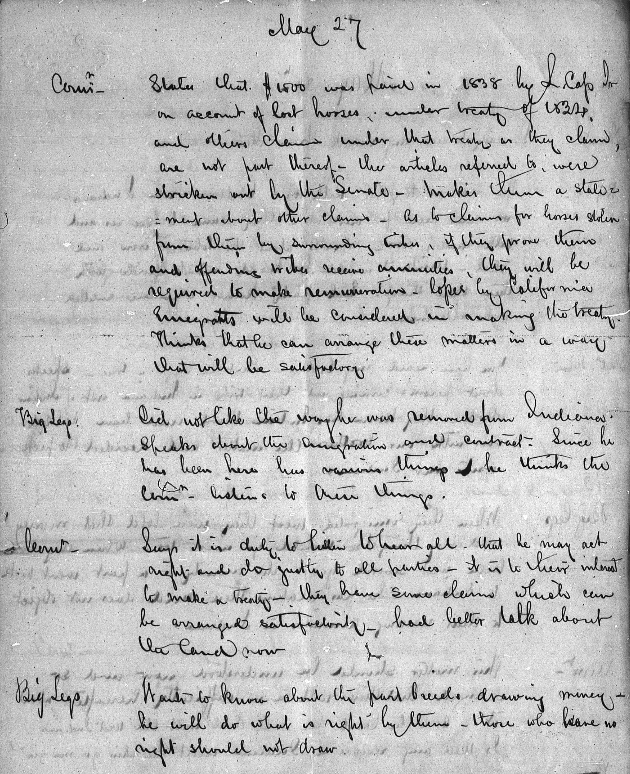 May 27
Comr - States that $1500 was paid in 1838 by
on account of lost horses, under treaty of 1834,
and others claim under that treaty as they claim,
are not part thereof - the articles referred to, were
stricken out by the Senate - makes them a state=
=ment about other claims - As to claims for horses stolen
from them by surrounding tribes, if they prove them
and offending tribes receive annuities, they will be
required to make remuneration - losses by California
Emigrants will be considered in making the treaty.
Thinks that he can arrange these matters in a way
that will be satisfactory
Big Legs. Did not like the way he was removed from Indiana.
Speaks about the emigration and contract - Since he
has been here has various things he thinks the
Comr - listens to these things.
Comr - Says it is duty to listen to hear all that he may act
right and do justly to all parties - it is to their interest
to make a treaty - they have some claims which can
be arranged satisfactorily - had better talk about
the land now
Big Legs Wants to know about the part breeds drawing money -
he will do what is right by them - those who have no
right should not draw